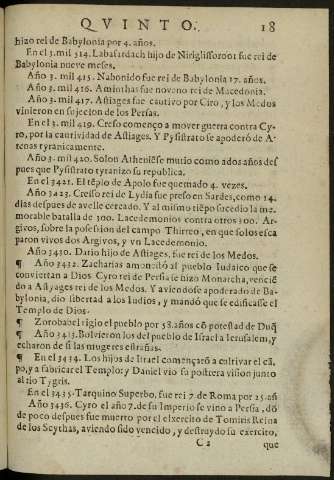 QVINTO. 18
hizo rei de Babylonia por 4. años.
En el 3. mil 314. Labasardach hijo de Niriglissoroor fue rei de
Babylonia nueve meses.
Año 3. mil 415. Nabonido fue rei de Babylonia 17. años.
Año 3. mil 416. Aminthas fue noveno rei de Macedonia.
Año 3. mil 417. Astiages fue cautivo por Ciro, y los Medos
vinieron en sujecion de los Persas.
En el 3. mil 419. Creso començo a mover guerra contra Cy-
ro, por la cautividad de Astiages. Y Pysistrato se apoderó de A-
tenas tyranicamente.
Año 3. mil 420. Solon Atheniẽse murio como a dos años des
pues que Pysistrato tyranizo su republica.
En el 3421. El tẽplo de Apolo fue quemado 4. vezes.
Año 3423. Creso rei de Lydia fue preso en Sardes, como 14.
dias despues de averle cercado. Y al mismo tiẽpo sucedio la me-
morable batalla de 300. Lacedemonios contra otros 300. Ar-
givos, sobre la posesion del campo Thirreo, en que solos esca
paron vivos dos Argivos, y vn Lacedemonio.
Año 3430. Dario hijo de Astiages, fue rei de los Medos.
¶ Año 3432. Zacharias amonestó al pueblo Iudaico que se
conviertan a Dios Cyro rei de Persa se hizo Monarcha, venciẽ
do a Astyages rei de los Medos. Y aviendose apoderado de Ba-
bylonia, dio libertad a los Iudios, y mandó que se edificasse el
Templo de Dios.
¶ Zorobabel rigio el pueblo por 58. años cõ potestad de Duq̃
¶ Año 3433. Bolvieron los del pueblo de Israel a Ierusalem, y
echaron de si las mugeres estrañas.
¶ En el 3434. Los hijos de Israel començarõ a cultivar el cã-
po, y a fabricar el Templo: y Daniel vio su postrera vision junto
al rio Tygris.
En el 3435. Tarquino Superbo, fue rei 7 de Roma por 25. añ
Año 3436. Cyro el año 7. de su Imperio se vino a Persa, dõ
de poco despues fue muerto por el exercito de Tomiris Reina
de los Scythas, aviendo sido vencido, y destruydo su exercito,
C 2 que